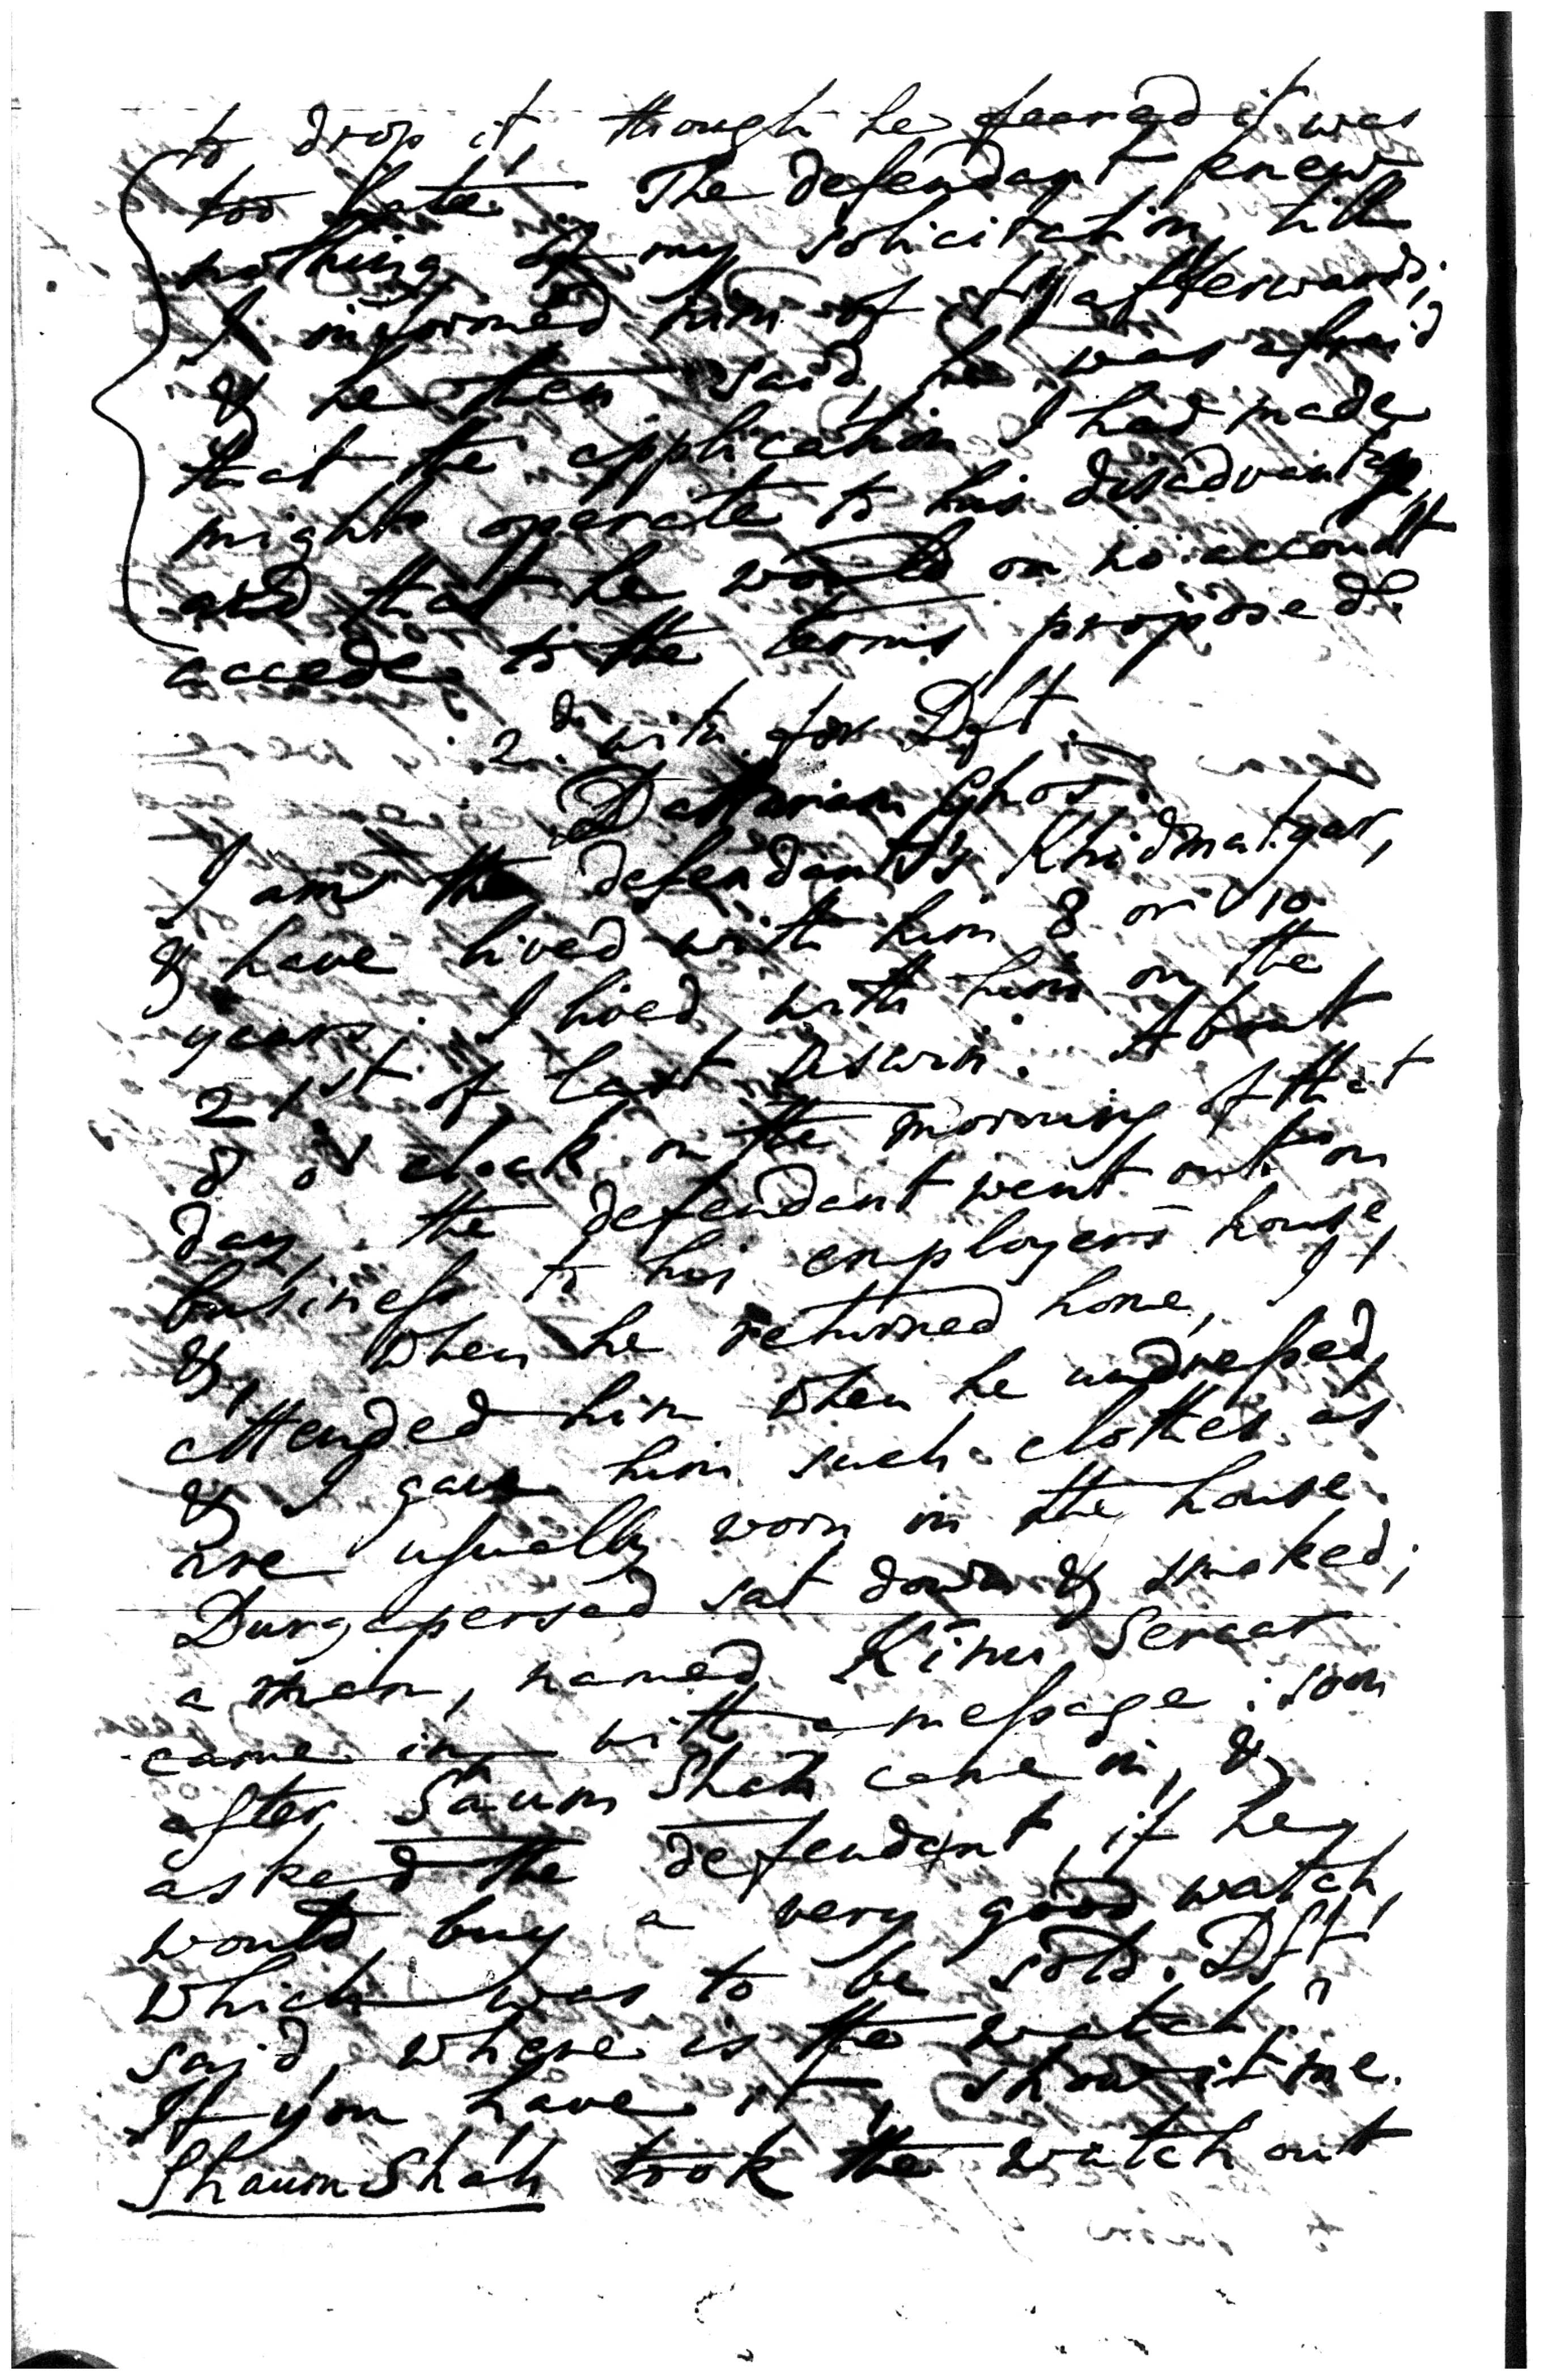 to drop it, though he feared it was
too late. The defendant knew
nothing of my solicitation, till
I informed him of it afterwards;
& he then said, he was afraid
that the application I had made
might operate to his disadvantage,
and that he would on no account
accede to the terms proposed.
2d. witn. for Dft.
Ghos.
I am the defendant's Khidmatgar,
& have lived with him 8 or 10
years. I lived with him on the
21st of last Aswin. About
8 o'clock in the morning of that
day, the defendant went out on
business to his employer's house,
&, when he returned home, I
attended him when he undressed,
& I gave him such clothes as
are usually worn in the house.
Durgapersad sat down & smoked;
a man, named Kinu Sercar
came in with a message: soon
after Saum Shah came in, &
asked the defendant, if he
would buy a very good watch,
which was to be sold. Dft.
said, where is the watch?
If you have it, show it me.
Shaum Shah took the watch out